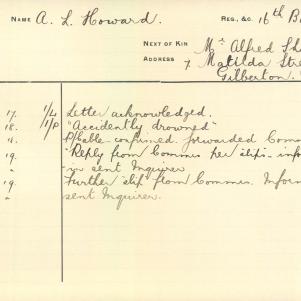 NAME A. L. Howard. REG., &C. 16th B
NEXT OF KIN Mr Alfred Sh
ADDRESS 7 Matilda Stre
Gilberton.
17. 1/4 Letter acknowledged.
18. "Accidently drowned"
P/cable confirmed. forwarded Comm
19. "Reply from Commrs per slip - infor
" in sent Inquirer
19. Further slip from Commrs. Inform
" sent Inquirer.